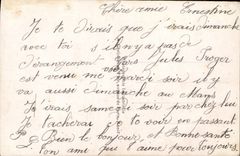 Chère amie Ernestine
Je te dirais que j'irais dimanche
avec toi s'il n'y a pas de
dérangement Jules
est venu me mardi soir il y
va aussi dimanche au Mans
J'irais samedi soir par chez lui
Je tacherai de te voir en passant
Bien le bonjour et bonne santé
ton ami qui t'aime pour toujours